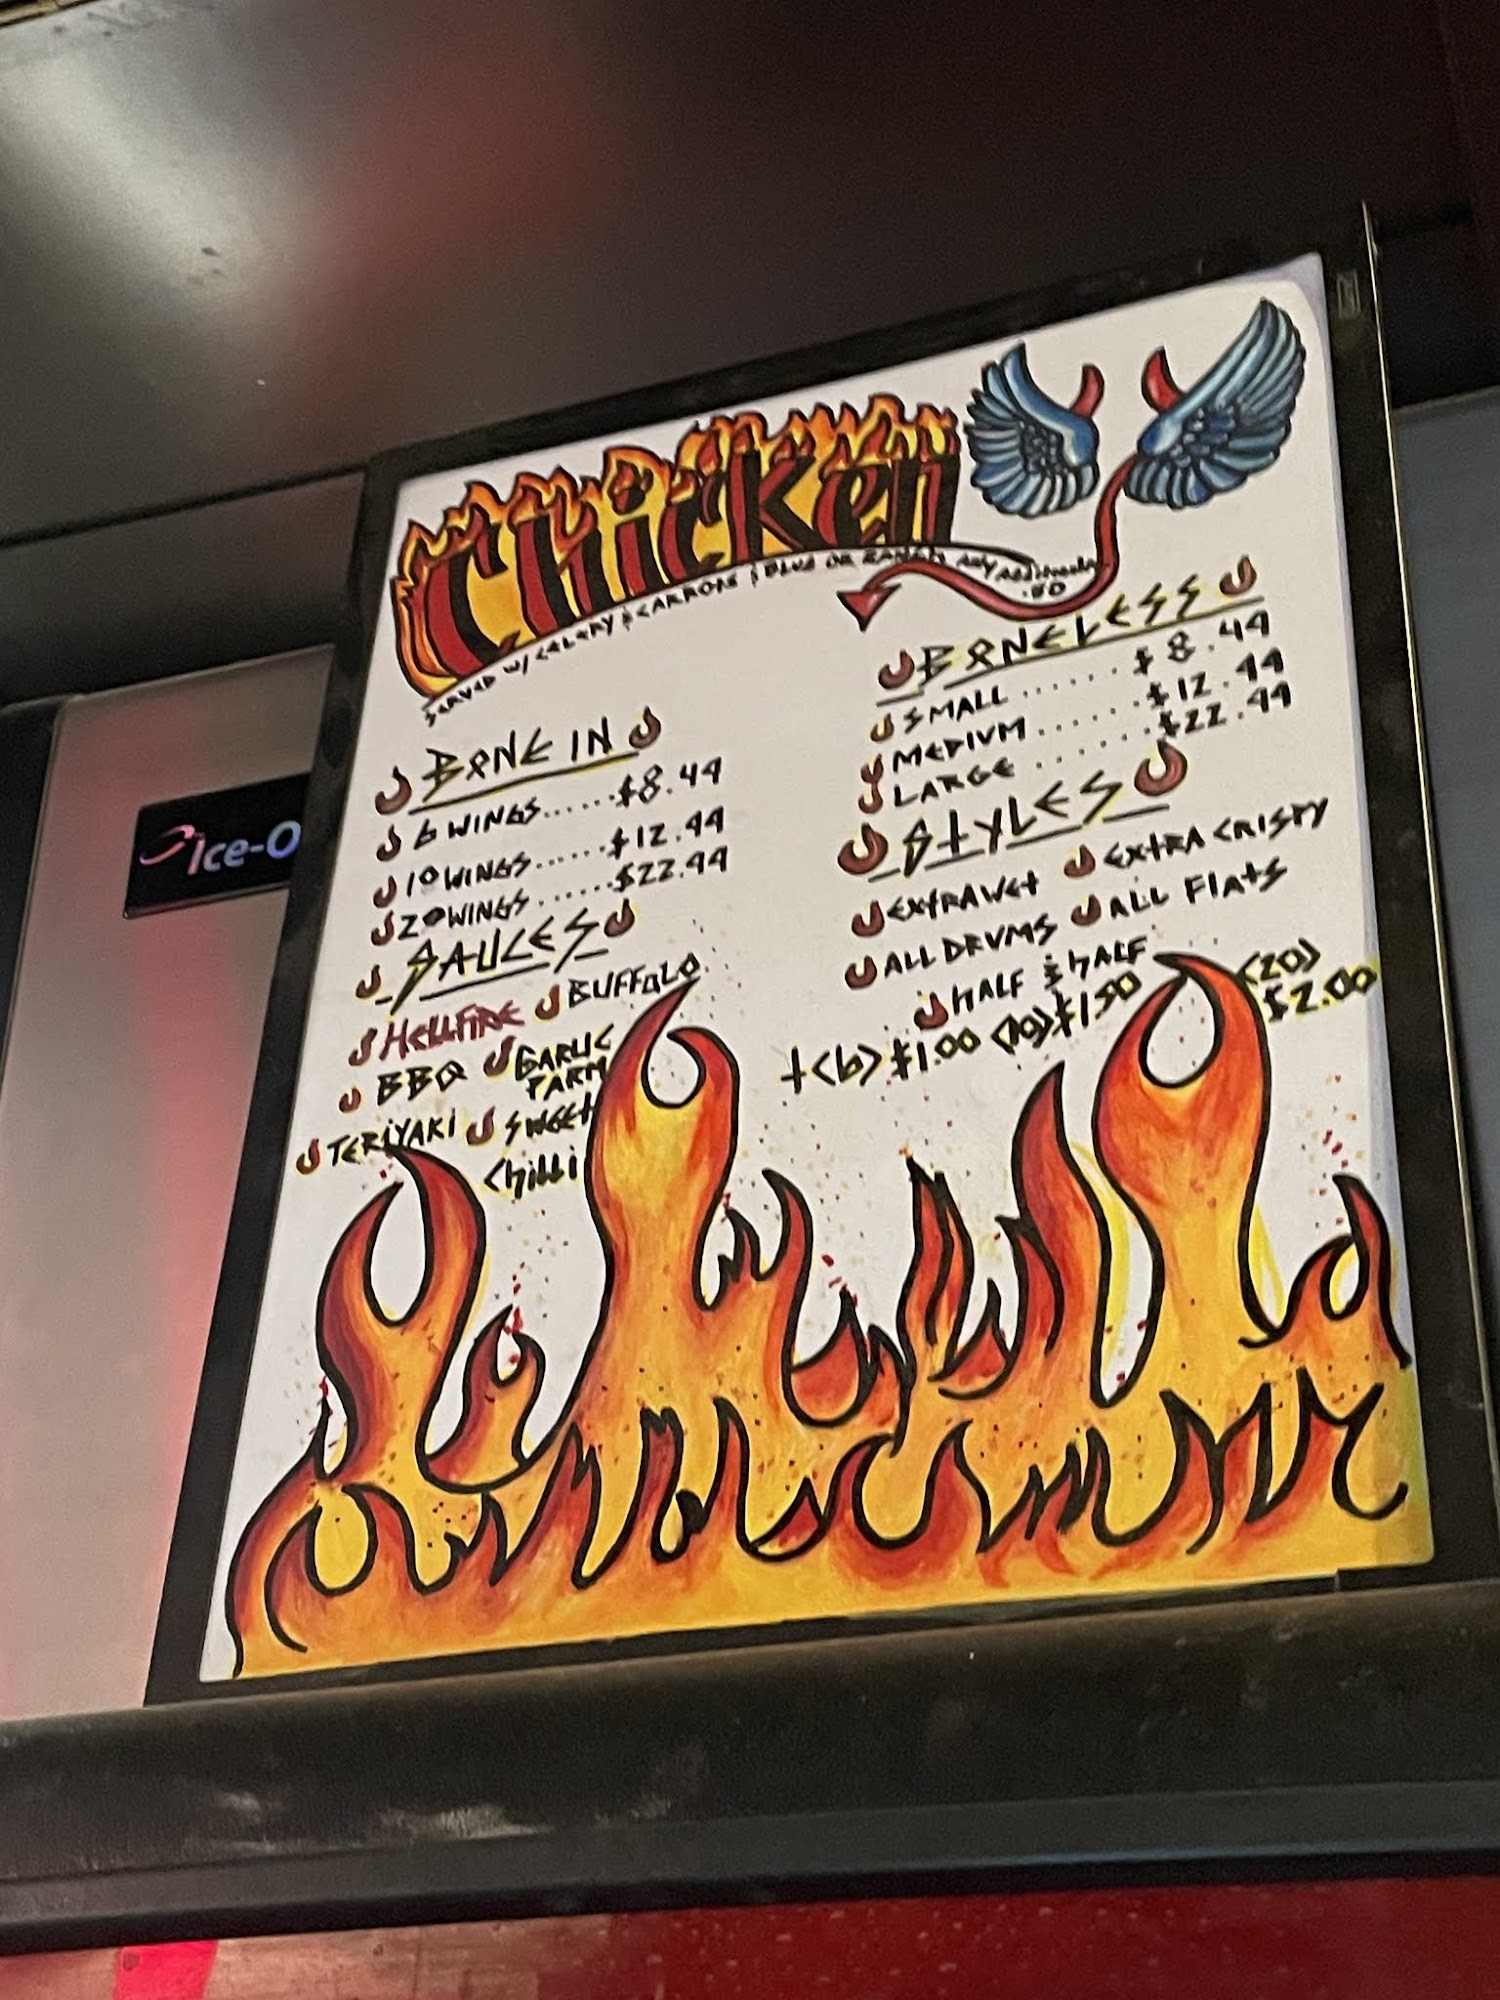 Chicken
SERVED W/ CELERY & CARROTS & BLUE OR RANCH ANY ADDITIONAL .50
BONE IN
6 WINGS......$8.49
10 WINGS......$12.99
20 WINGS......$22.99
SAUCES
HELLFIRE BUFFALO
BBQ GARLIC PARM
TERIYAKI SWEET CHILLI
BONELESS
SMALL ...... $8.49
MEDIUM ...... $12.99
LARGE ...... $22.99
STYLES
EXTRA WET EXTRA CRISPY
ALL DRUMS ALL FlAtS
HALF & HALF
+(6) $1.00 (10) $1.50 (20) $2.00
Ice-O